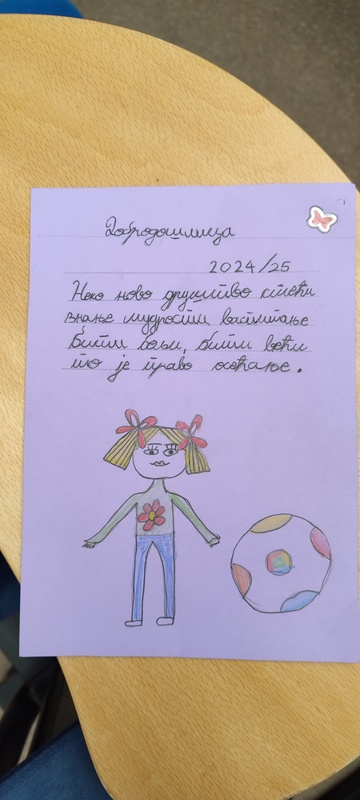 Добродошлица
2024/25
Неко ново друштво стећи
знање мудрости васпитање
бити бољи, бити већи
то је право осећање.